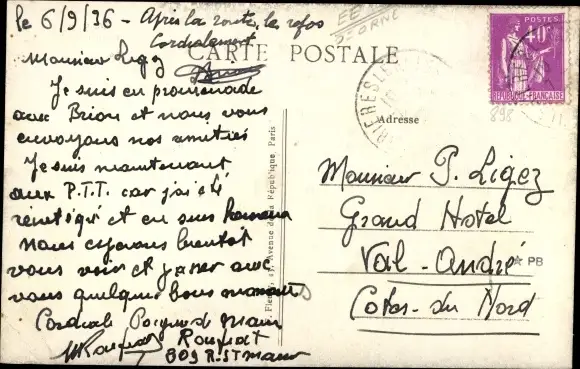 le 6/9/36 - Après la route, le repos
Cordialement
CARTE POSTALE
Monsieur Ligez
Je suis en promenade
avec Brion et nous vous
envoyons nos amitiés
Je suis maintenant
aux P.T.T. car j'ai été
réintégré et en suis heureux
Nous espérons bientôt
vous voir et passer avec
vous quelques bons moments
Cordiale Poignée de main
309 R. St Maur
Avenue de la République, Paris
POSTES
REPUBLIQUE FRANÇAISE
898
Adresse
Monsieur P. Ligez
Grand Hotel
Val-André
Cotes-du Nord
PB